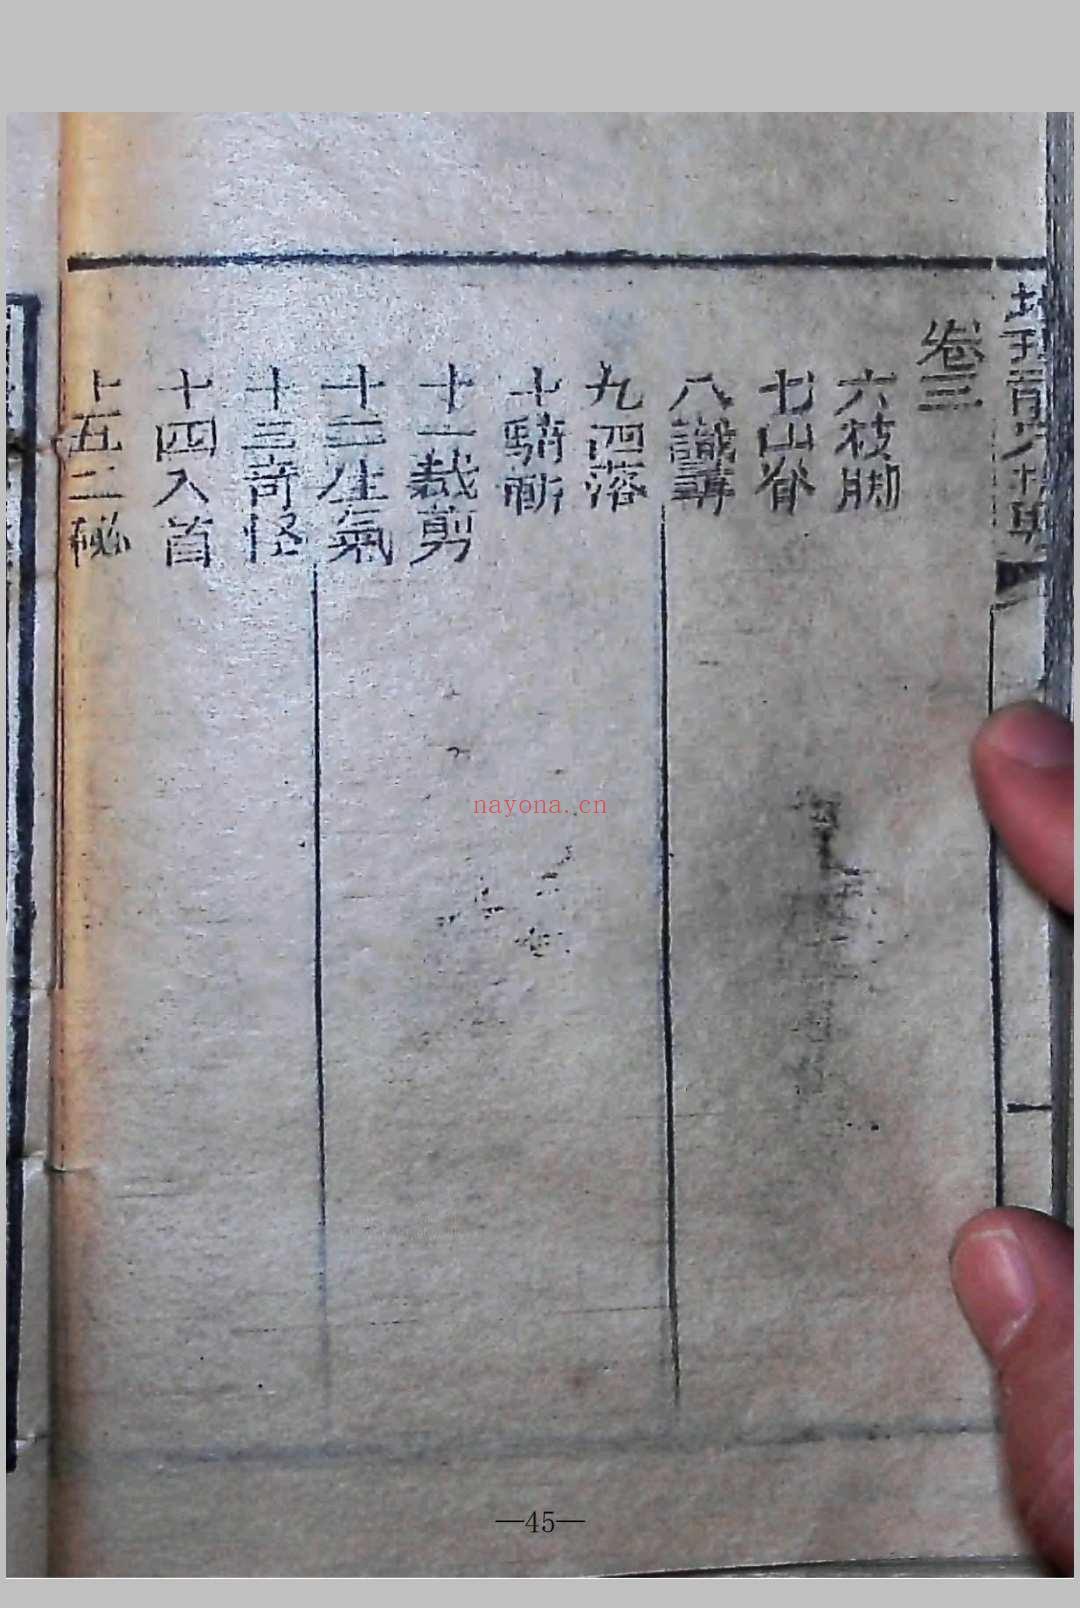 卷三
六枝脚
七山脊
八識講
九洄落
十騎斬
十一裁剪
十二生氣
十三奇怪
十四入首
十五二秘
nayona.cn
—45—